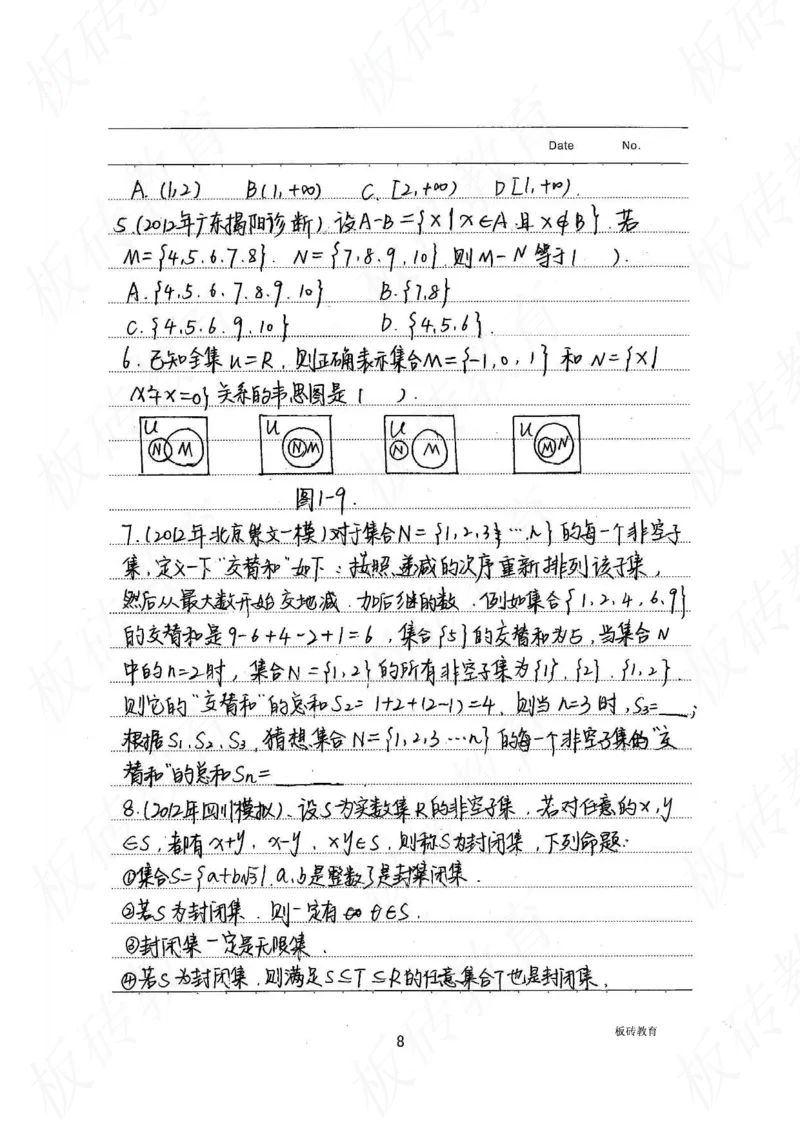 Date No.
A. (1,2) B(1,+∞) C. [2,+∞) D[1,+∞).
5.(2012年广东揭阳诊断).设A-B={x|x∈A且x∉B}.若
M={4,5.6.7.8}. N={7.8.9.10}.则M-N等于( ).
A.{4.5.6.7.8.9.10} B.{7,8}
C.{4.5.6.9.10} D.{4,5,6}.
6.已知全集U=R,则正确表示集合M={-1,0,1}和N={x|
x²+x=0}关系的韦恩图是( ).
U N M U N M U N M U M N
图1-9.
7.(2012年北京 文一模)对于集合N={1,2,3,…,n}的每一个非空子
集,定义一下"交替和"如下:按照递减的次序重新排列该子集,
然后从最大数开始交地减.加后继的数.例如集合{1,2,4,6,9}
的交替和是9-6+4-2+1=6,集合{5}的交替和为5,当集合N
中的n=2时,集合N={1,2}的所有非空子集为{1}.{2}.{1,2}.
则它的"交替和"的总和S2=1+2+(2-1)=4,则当n=3时,S3=___;
根据S1.S2.S3,猜想集合N={1,2,3…n}的每一个非空子集的"交
替和"的总和Sn=______
8.(2012年四川模拟).设S为实数集R的非空子集.若对任意的x,y
∈S,都有x+y,x-y,xy∈S,则称S为封闭集,下列命题:
①集合S={a+b√3|.a,b是整数}是封集闭集.
②若S为封闭集.则一定有 0∈S.
③封闭集一定是无限集.
④若S为封闭集.则满足S⊆T⊆R的任意集合T也是封闭集.
板砖教育
8